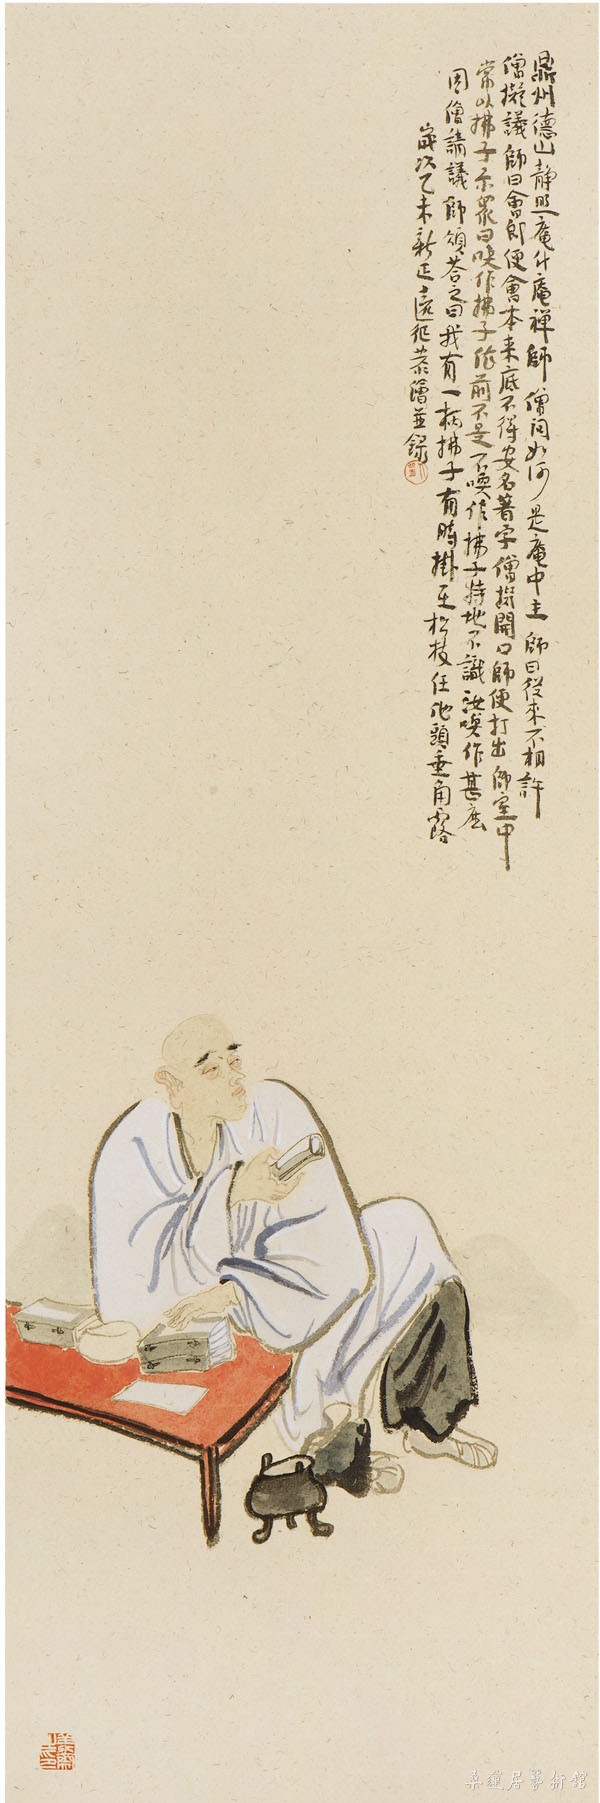 鼎州德山静照庵什庵禅師僧问如何是庵中主師曰從來不相許
僧擬議師曰會即便會本来底不得安名著字僧擬開口師便打出師室中
常以拂子示眾曰喚作拂子依前不是不喚作拂子特地不識汝喚作甚麼
因僧請議師頌荅之曰我有一柄拂子有時掛在松枝任他頭垂角露
歲次乙未新正遠征恭繪並錄
桑蓮居藝術館